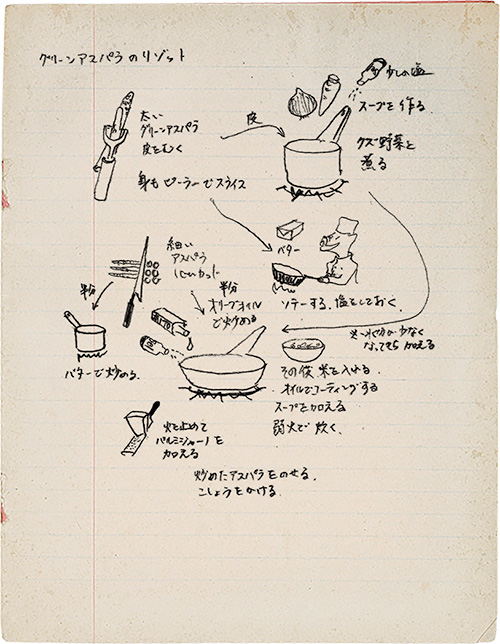 グリーンアスパラのリゾット
太い
グリーンアスパラ
皮をむく
皮
少しの塩
スープを作る
クズ野菜と
煮る
身もピーラーでスライス
バター
ソテーする、塩をしておく、
細い
アスパラ
カット
半分
半分
オリーブオイル
で炒める
バターで炒める、
スープが少なく
なってきたら加える
その後、米を入れる、
オイルでコーティングする
スープを加える
弱火で炊く、
火を止めて
パルミジャーノを
加える
炒めたアスパラをのせる、
こしょうをかける、